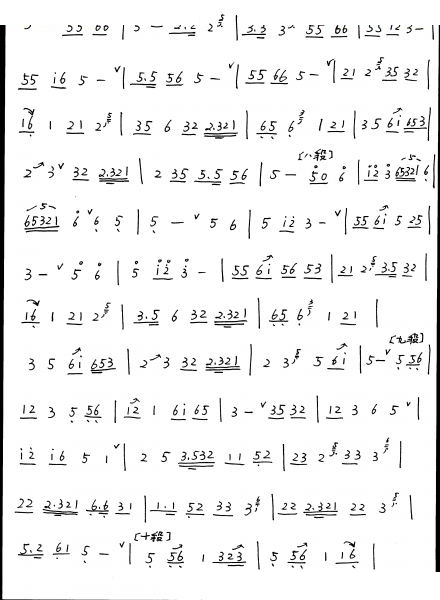 55 66 | 5 – 3.2 2 | 3.3 3 55 66 | 55 12 3 – |
55 i6 5 – ᵛ | 5.5 56 5 – ᵛ | 55 66 5 – ᵛ | 21 2 35 32 |
16 1 21 2 | 35 6 32 2.321 | 65 6 1 21 | 3 5 6i 653 |
2 3 ᵛ 32 2.321 | 2 35 5.5 56 | 5 – [八段] 50 6 | i2 3 65321 6 |
65321 6 ᵛ 6 5 | 5 – ᵛ 5 6 | 5 i2 3 – ᵛ | 55 6i 5 25 |
3 – ᵛ 5 6 | 5 i2 3 – | 55 6i 56 53 | 21 2 3.5 32 |
16 1 21 2 | 3.5 6 32 2.321 | 65 6 1 21 |
3 5 6i 653 | 2 3 32 2.321 | 2 3 5 6i | 5 – ᵛ [九段] 5 56 |
12 3 5 56 | 12 1 6i 65 | 3 – ᵛ 35 32 | 12 3 6 5 ᵛ |
i2 i6 5 1 ᵛ | 2 5 3.532 11 52 | 23 2 33 3 |
22 2.321 6.6 31 | 1.1 52 33 3 | 22 2.321 22 3 |
5.2 61 5 – ᵛ | [十段] 5 56 1 323 | 5 56 1 16 |